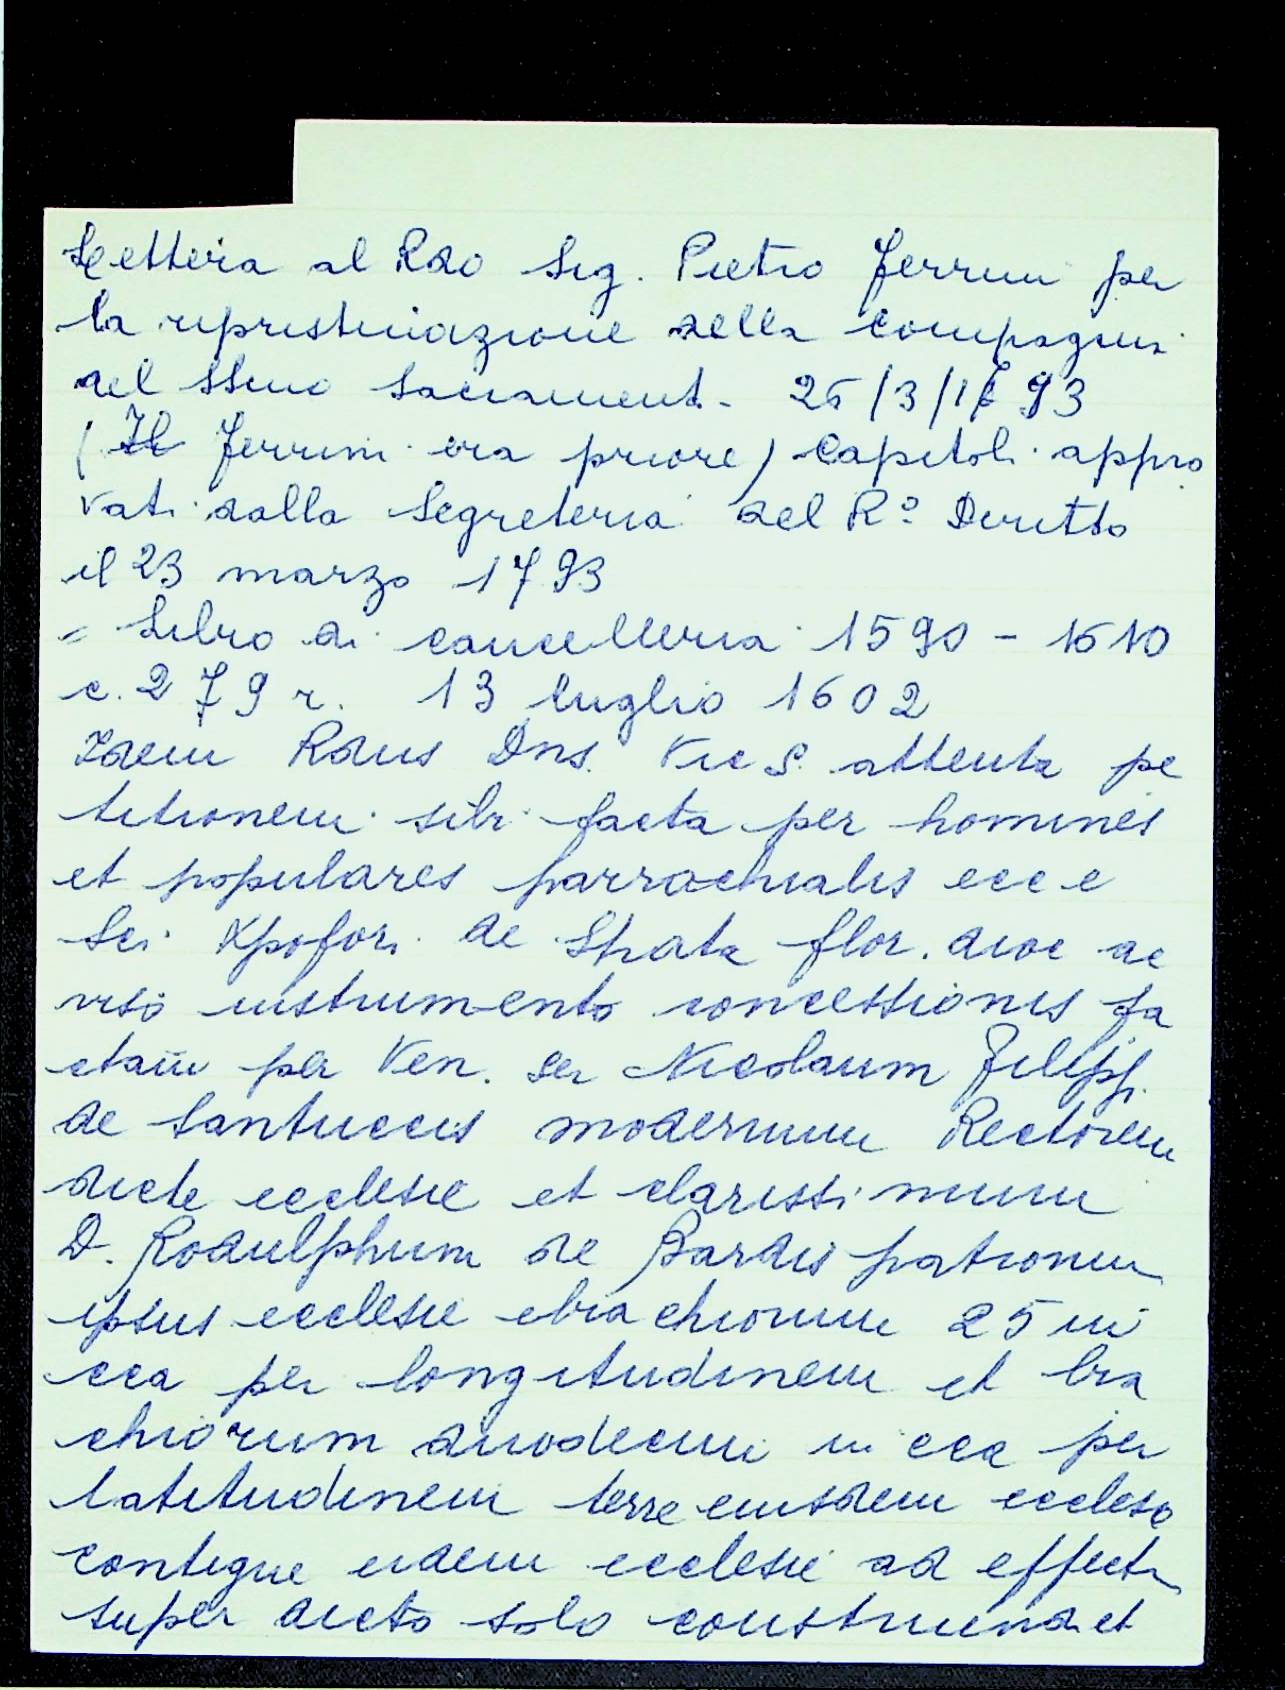 Lettera al Rdo Sig. Pietro Ferrini per
la ripristinazione della compagnia
del SSmo Sacrament. 26/3/1793
(Il Ferrini era priore) Capitoli appro
vati dalla Segreteria del Rº Diritto
il 23 marzo 1793
= Libro di cancelleria 1590 - 1610
c. 279 r. 13 luglio 1602
Idem Rdus Dns. Vic S. attenta pe
titionem sibi facta per homines
et populares parrochialis ecc e
Sci Xpofori de Strata flor. dioc ac
viso instrumento concessionis fa
ctam per Ven. ser Nicolaum Filipp.
de Santuccis modernum Rectorem
dicte ecclesie et clarissimum
D. Rodulphum de Bardis patronum
ipsius ecclesie brachiorum 25 in
cca per longitudinem et bra
chiorum duodecim in cca per
latitudinem terre eiusdem ecclesie
contigue eidem ecclesie ad effectu
super dicto solo construend et